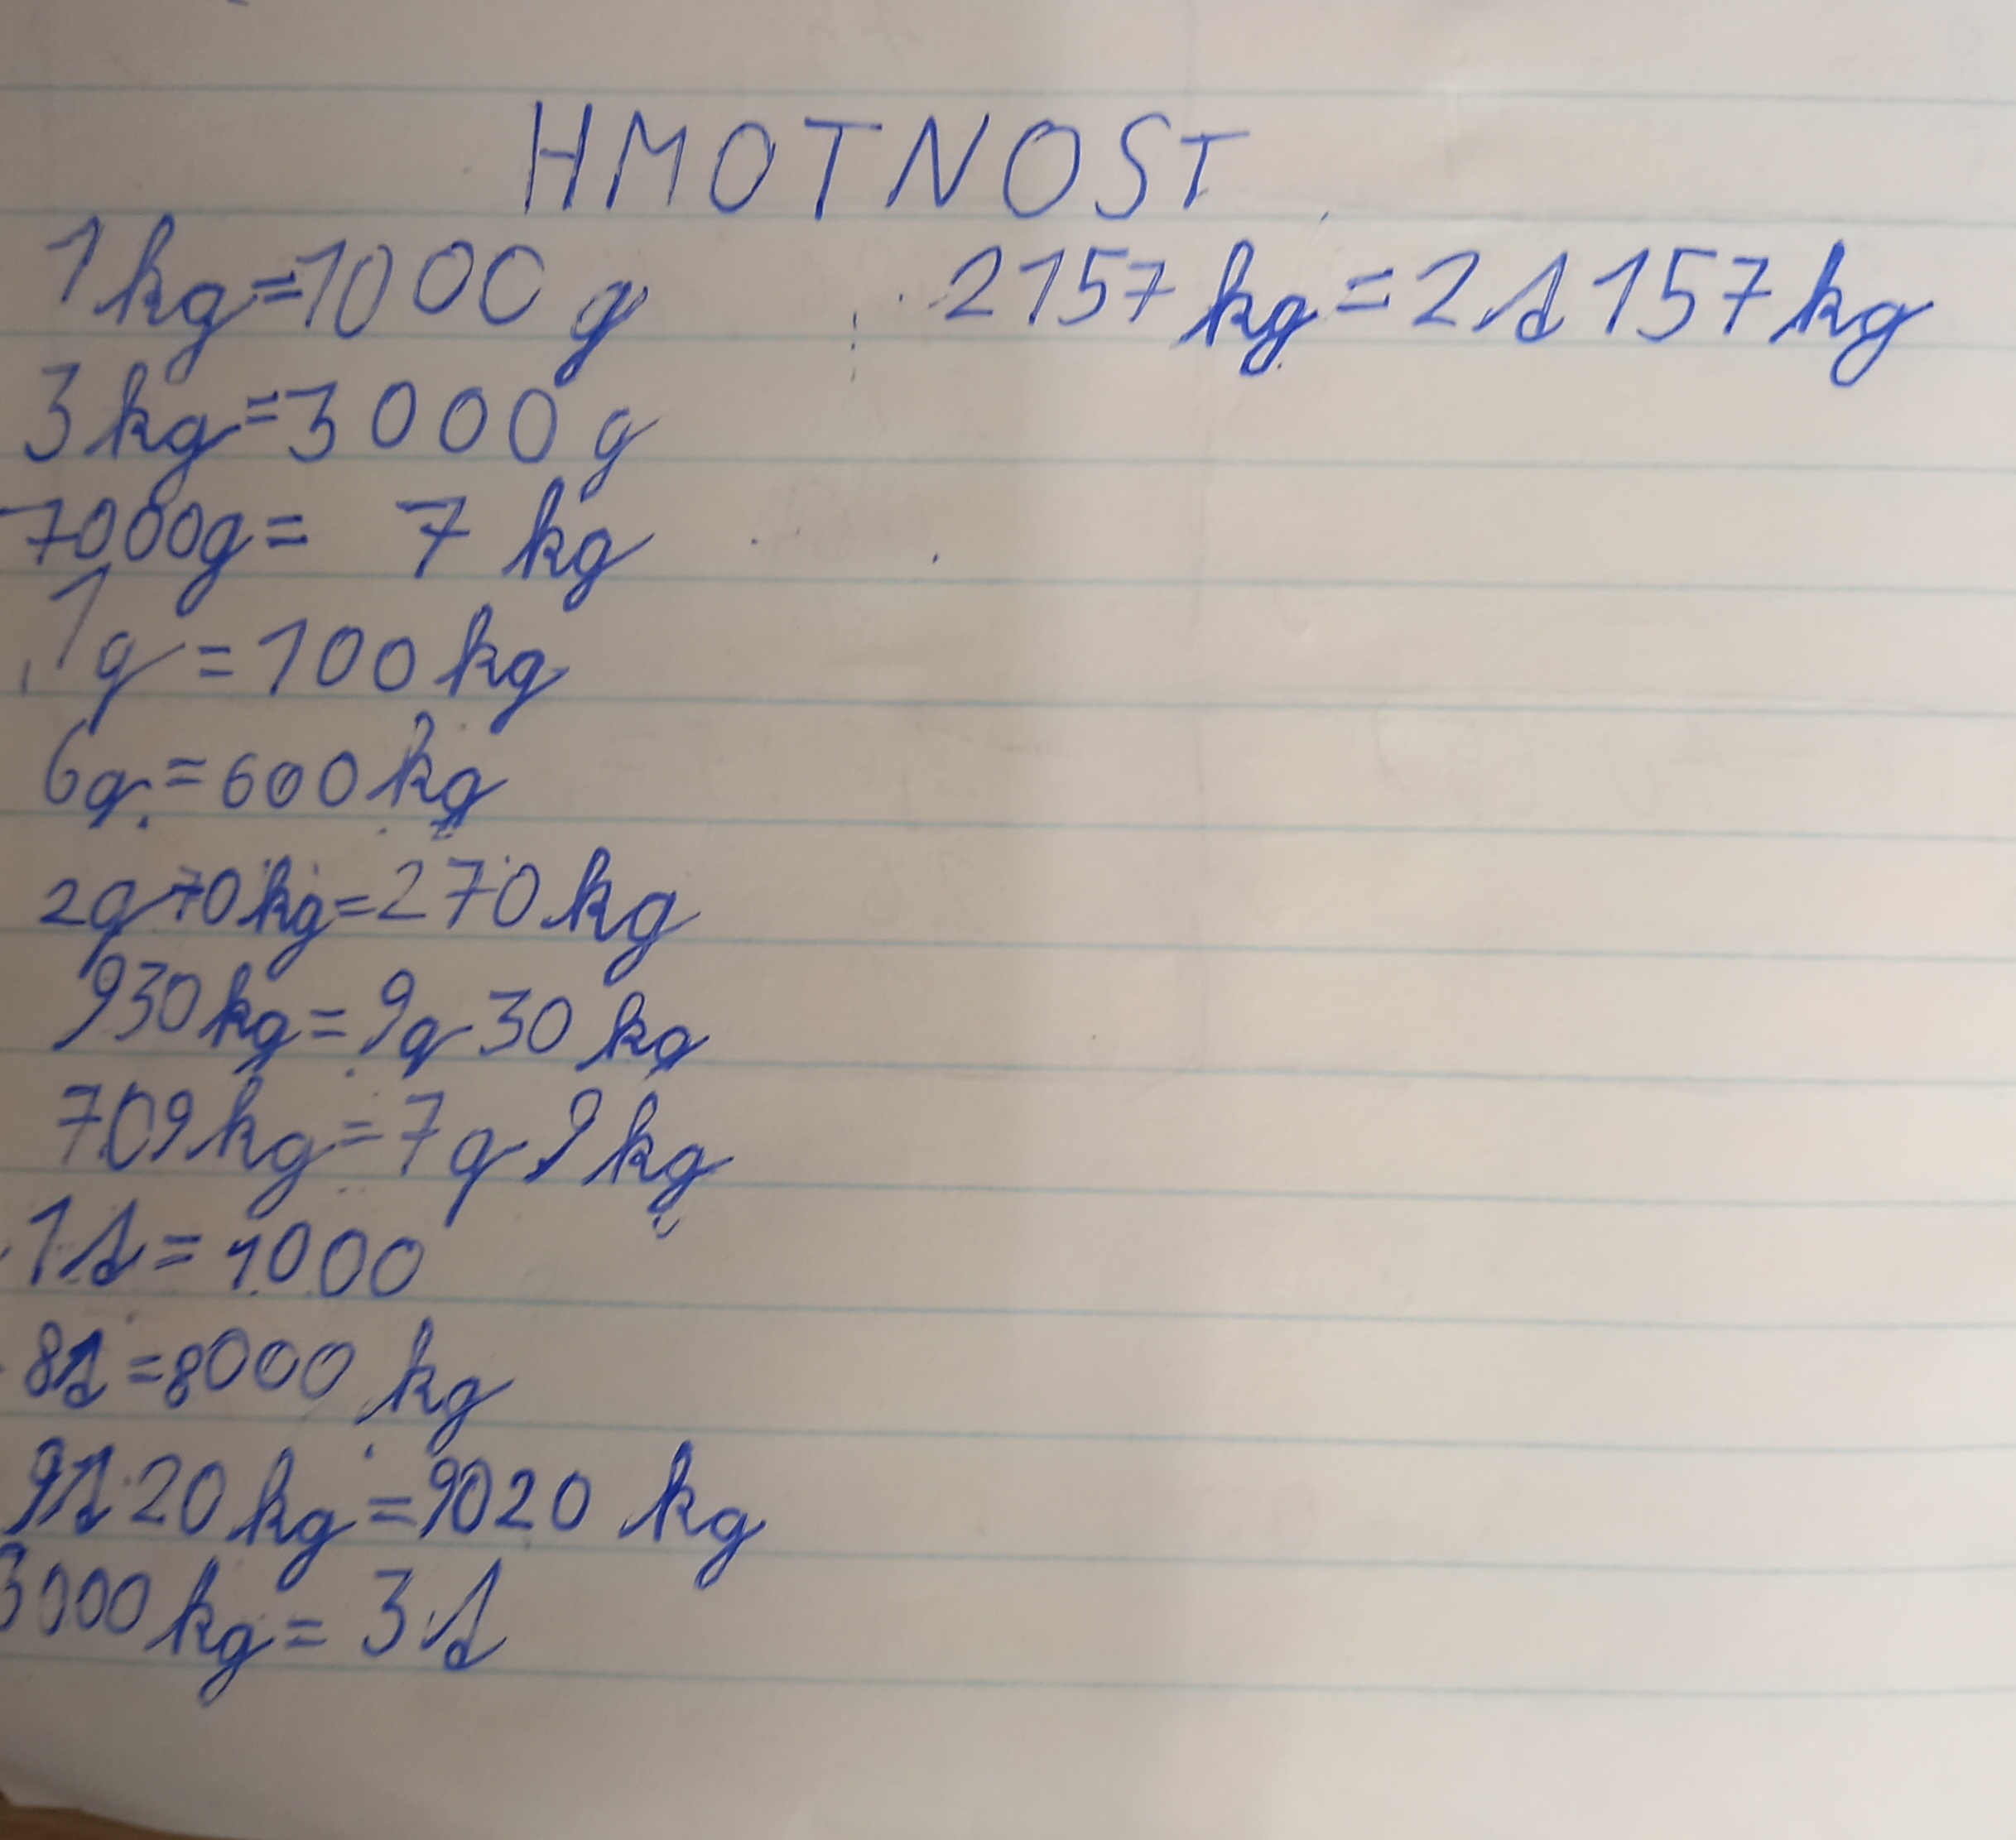 HMOTNOST
1 kg = 1000 g
3 kg = 3000 g
7000 g = 7 kg
1 q = 100 kg
6 q = 600 kg
2 q 70 kg = 270 kg
930 kg = 9 q 30 kg
709 kg = 7 q 9 kg
1 t = 1000
8 t = 8000 kg
9 t 20 kg = 9020 kg
3000 kg = 3 t
2157 kg = 2 t 157 kg